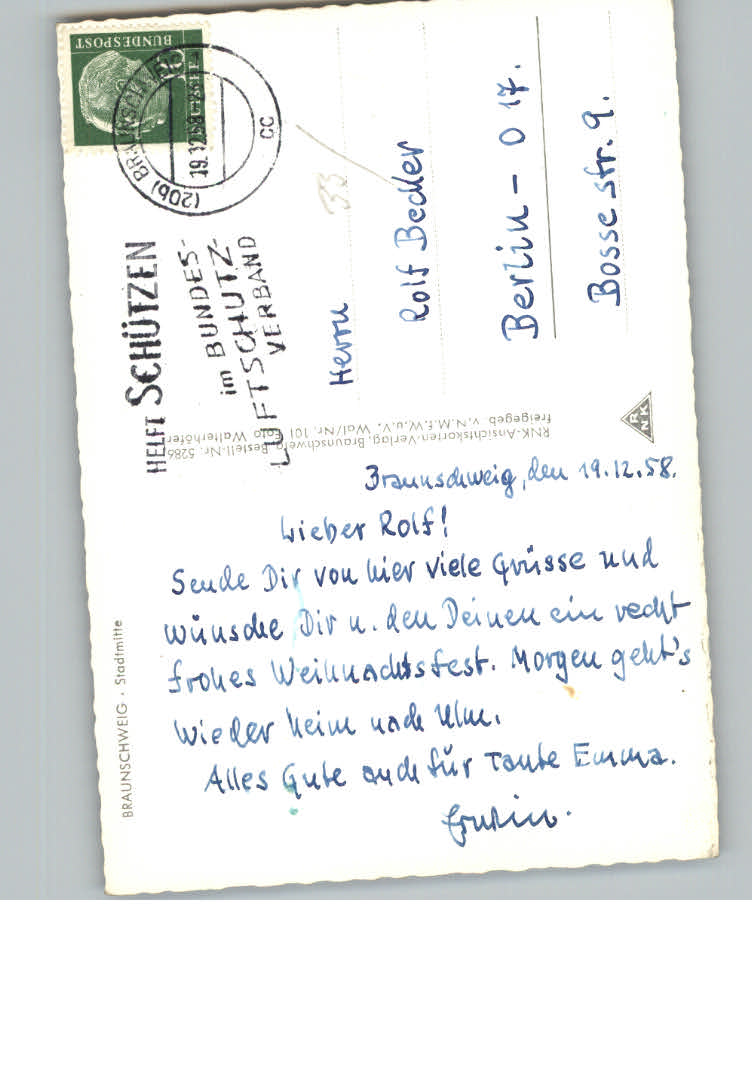 BUNDESPOST
(20b) BRAUNSCHWEIG
19.12.58
cc
HELFT SCHÜTZEN
im BUNDES-
LUFTSCHUTZ-
VERBAND
33
Herrn
Rolf Becker
Berlin - O 17.
Bosse str. 9.
RNK-Ansichtskarten-Verlag, Braunschweig, Bestell-Nr. 5286
freigegeb v. N.M.F.W.u.V. Wal/Nr. 101 Foto Walterhöfer
RNK
Braunschweig, den 19.12.58.
Lieber Rolf!
Sende Dir von hier viele Grüsse und
wünsche Dir u. den Deinen ein recht
frohes Weihnachtsfest. Morgen geht's
wieder heim nach Ulm.
Alles Gute auch für Tante Emma.
Erwin.
BRAUNSCHWEIG · Stadtmitte